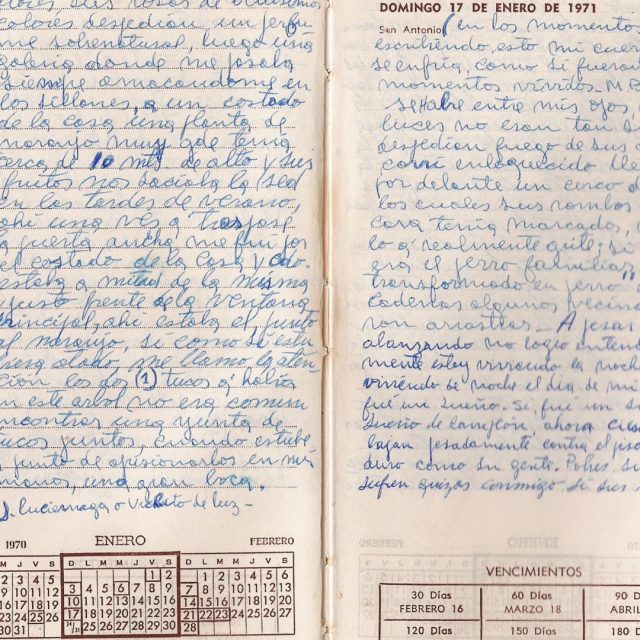 colores sus rosas de
colores despedian un perfu
me sobrenatural, luego una
galeria donde me pasaba
siempre amacandome en
los sillones, a un costado
de la casa una planta de
naranjo muy gde tenia
cerca de 10 mts de alto y sus
frutos nos saciaba la sed
en las tardes de verano,
ahi una ves a traspasé
la puerta ancha me fui por
el costado de la casa y cdo.
estaba a mitad de la misma
y justo frente a la ventana
principal, ahi estaba el junto
al naranjo, si como si estu
biera atado me llamo la aten
cion los dos (1) tucos q' habia
en este arbol no era comun
encontrar una yunta de
tucos juntos, cuando estube
a punto de apisionarlos en mis
manos, una gran boca.
1. luciernaga o Vichito de luz-
1970 ENERO FEBRERO
M J V S D L M M J V S D L M M J V S
2 3 4 5 1 2 1 2 3 4 5 6
9 10 11 12 3 4 5 6 7 8 9 7 8 9 10 11 12 13
16 17 18 19 10 11 12 13 14 15 16 14 15 16 17 18 19 20
23 24 25 26 17 18 19 20 21 22 23 21 22 23 24 25 26 27
30 31 24/31 25 26 27 28 29 30 28
DOMINGO 17 DE ENERO DE 1971
San Antonio (en los momentos
escribiendo, esto mi cuer
se enfria, como si fueran
momentos vividos.
se habre entre mis ojos,
luces no eran tan
despedian fuego de sus
corri enloquecido
por delante un cerco d
los cuales sus rombos
cara tenia marcados,
lo q' realmente quise: si
era el perro familiar,
transformado en perro
cadenas algunos vecino
ron arrastras - A pesar
abalanzando no logro entend
mente estoy viviendo la noch
viviendo se noche el dia de m
fué un sueño. Si, fué un su
sueño de Campeón, ahora
bajan pesadamente contra el pis
duro como su gente. Pobres
sufren quizas conmigo si sus
VENCIMIENTOS
30 Días 60 Días 90 D
FEBRERO 16 MARZO 18 ABRIL
120 Días 150 Días 180 D